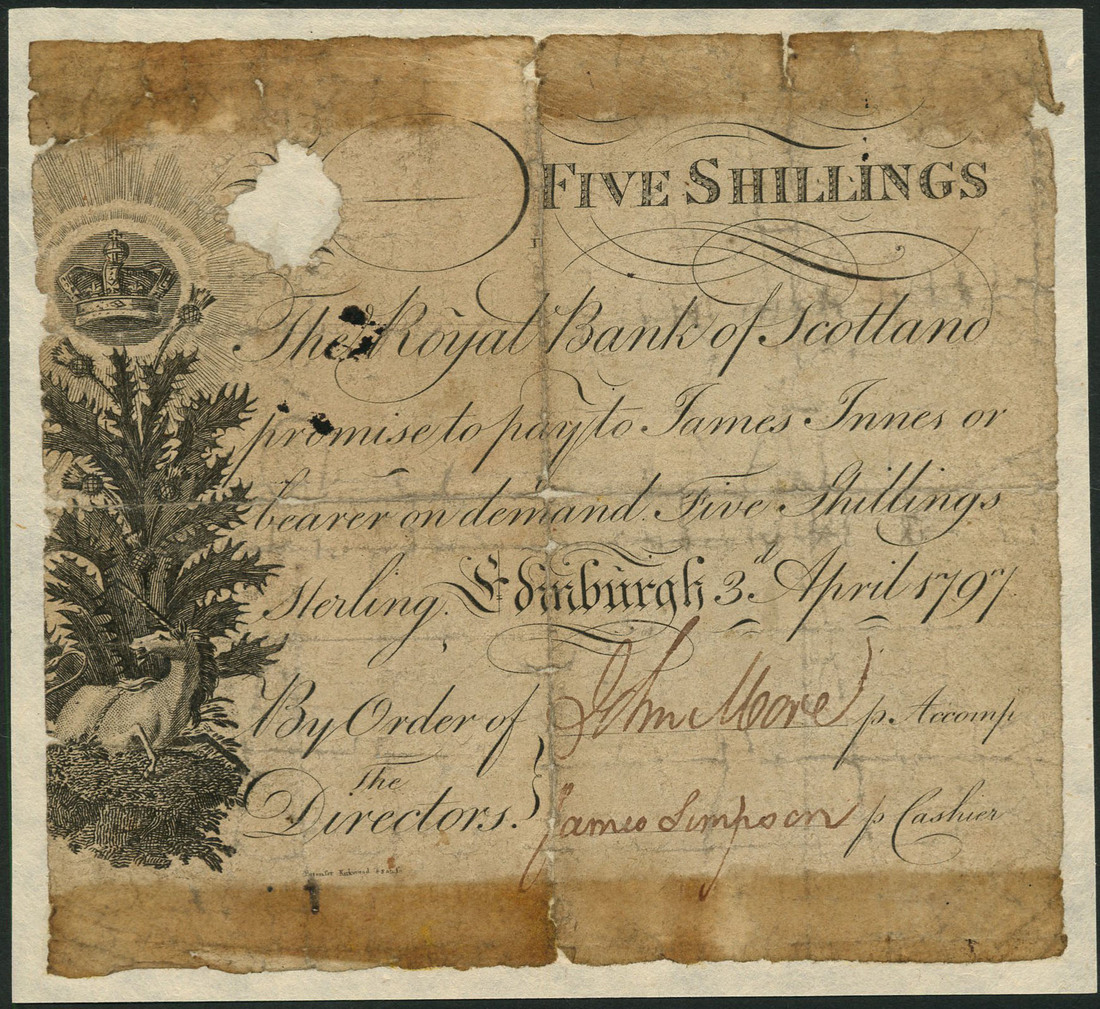 FIVE SHILLINGS
The Royal Bank of Scotland
promise to pay to James Innes or
bearer on demand Five Shillings
Sterling. Edinburgh 3.d April 1797.
By Order of John More p. Accomp
The
Directors. James Simpson p Cashier
Kirkwood & Sons